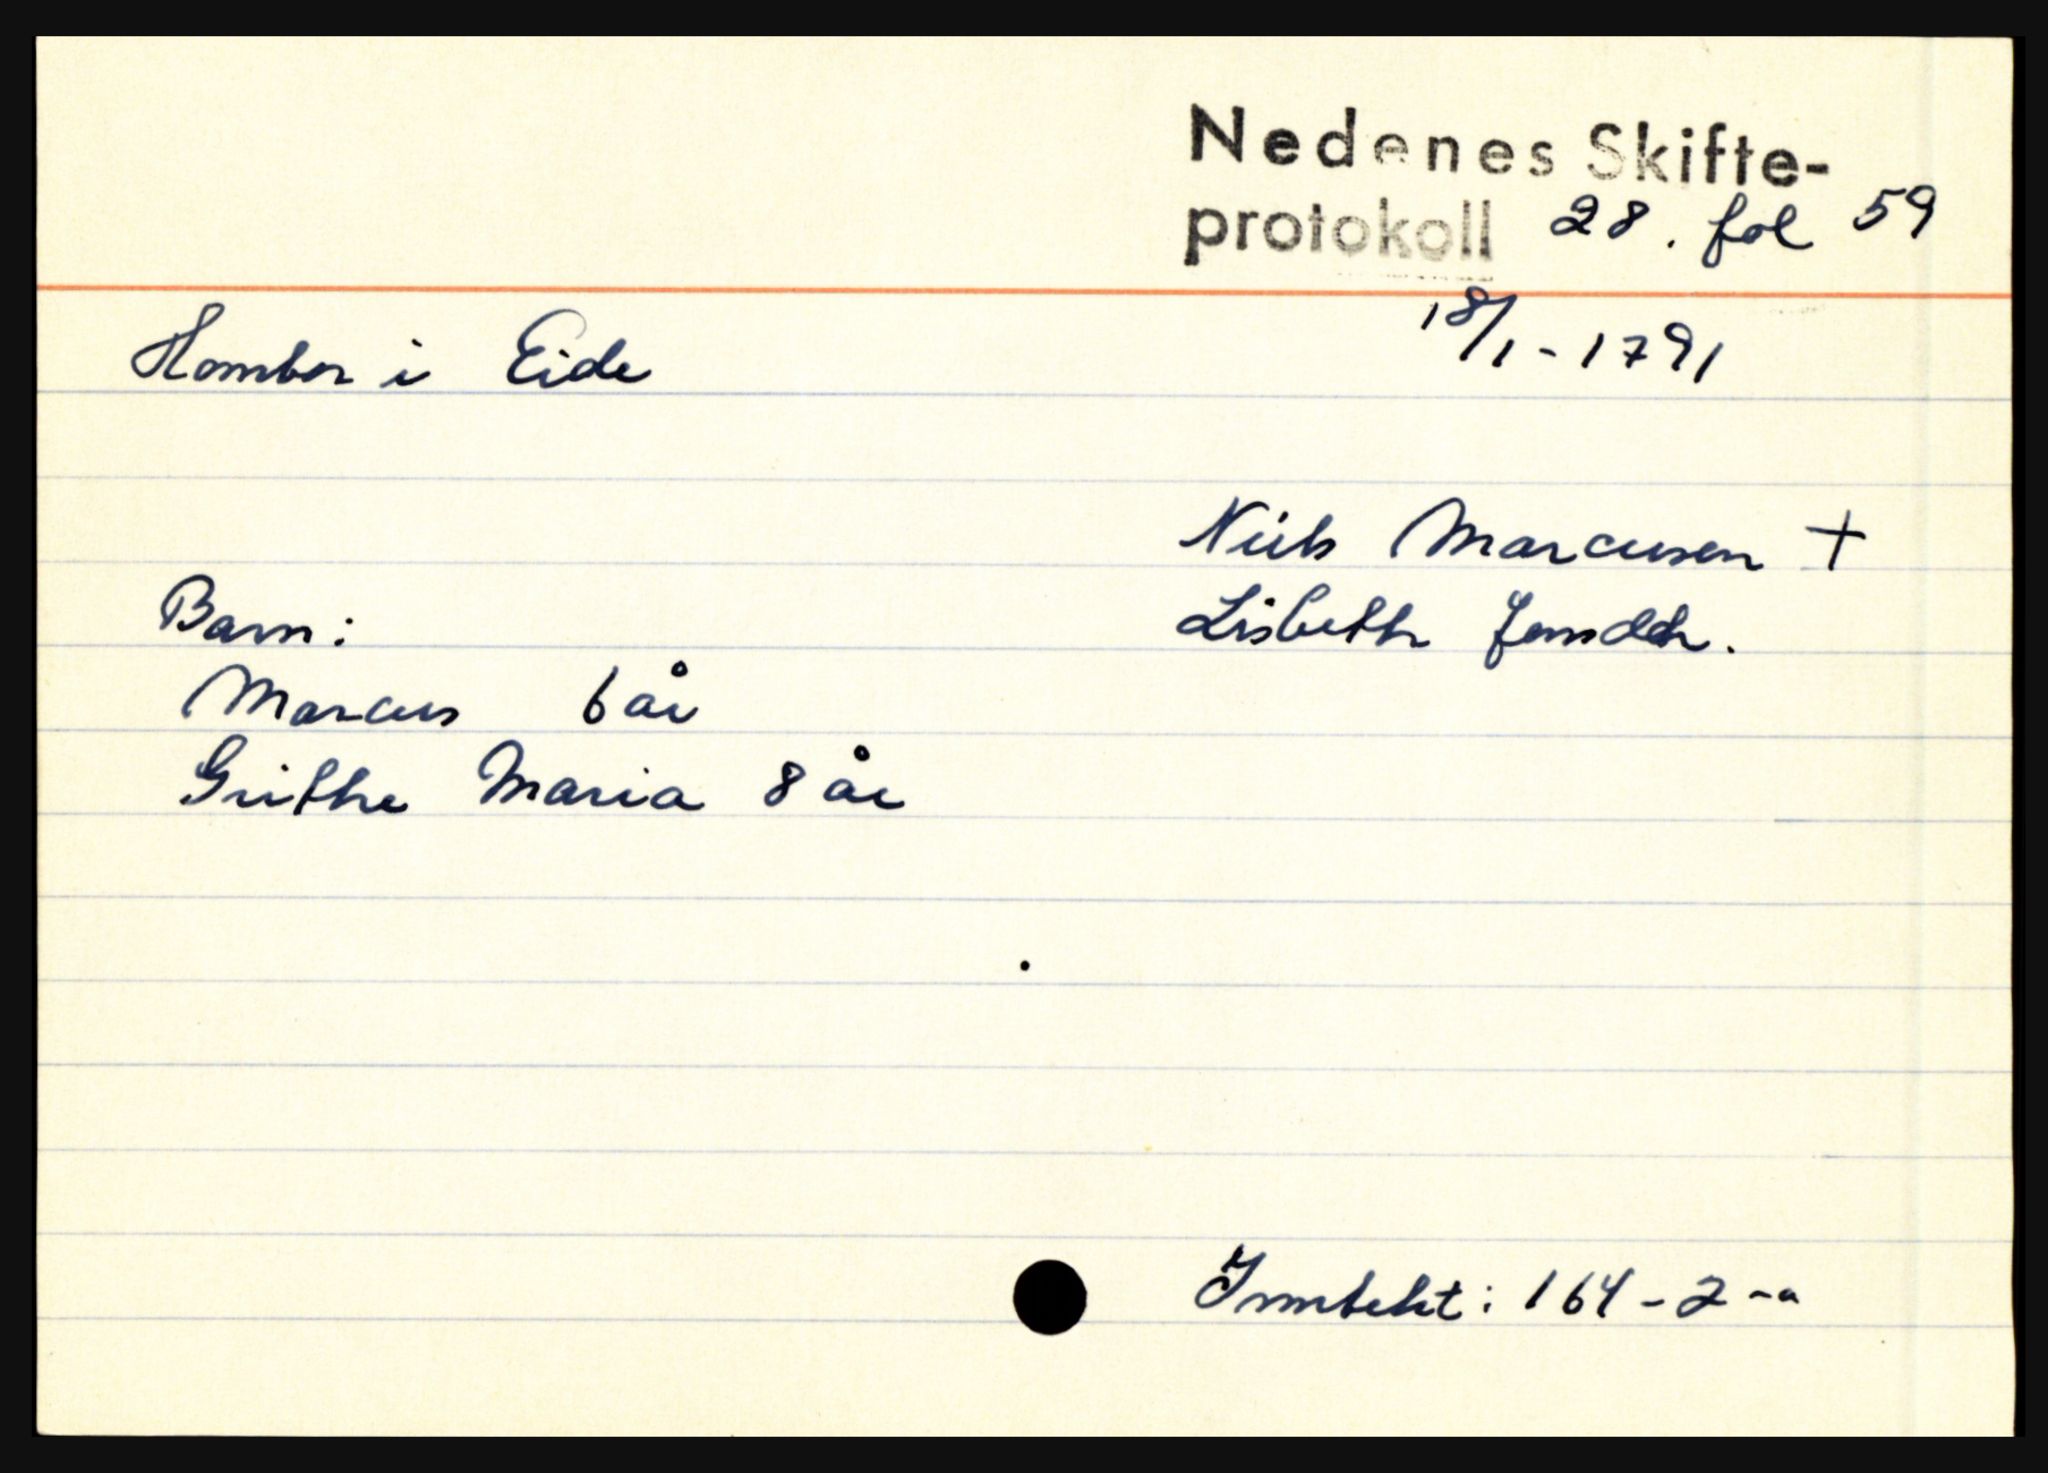 Nedenes Skifte-
protokoll 28. fol 59
Hombor i Eide 18/1-1791
Niels Marcusen +
Barn: Lisbeth Jensdtr.
Marcus 6 år
Grithe Maria 8 år
Inntekt: 164-2-"